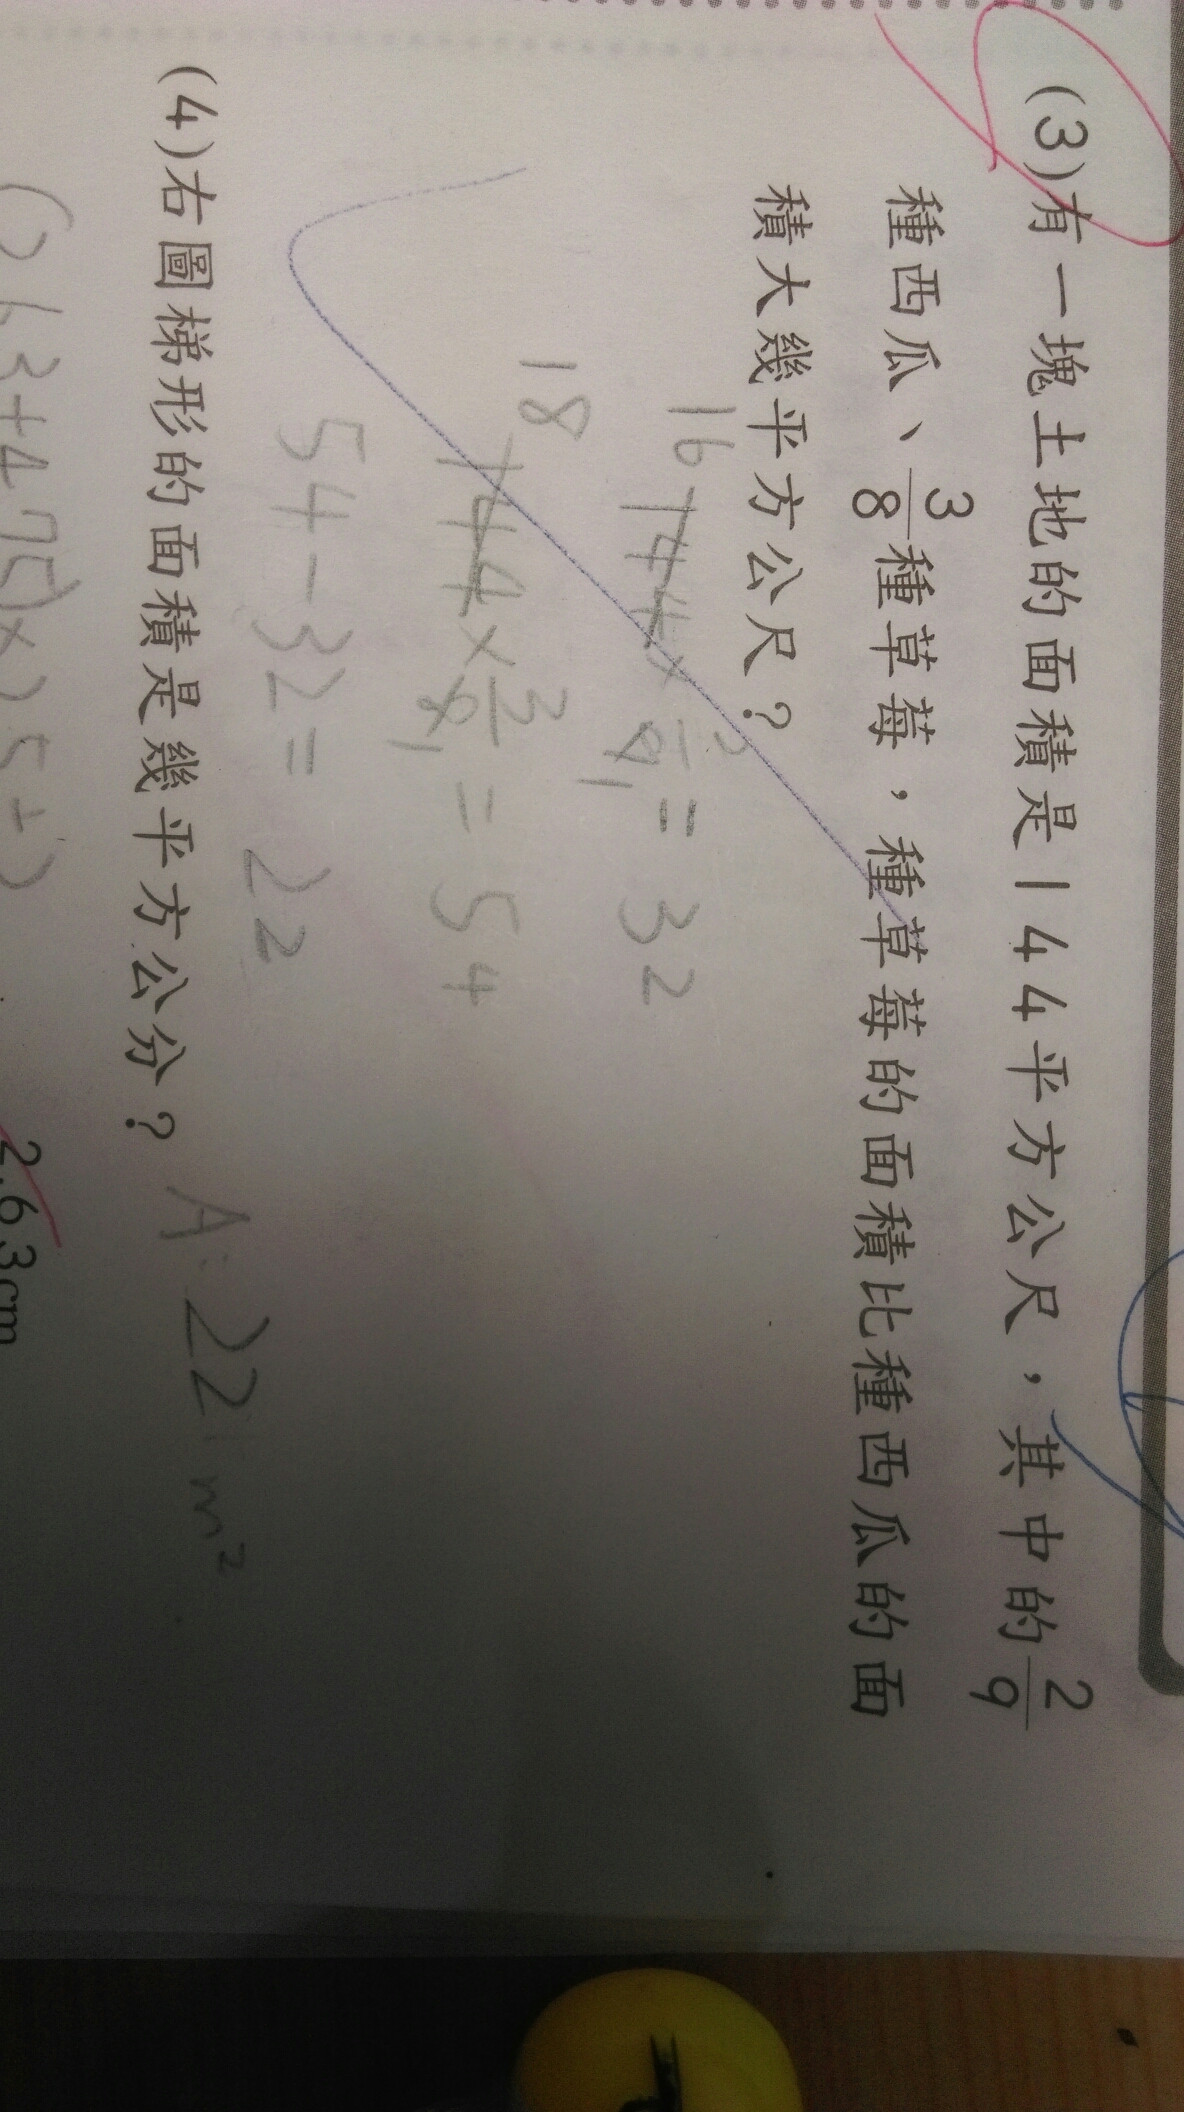 (3)有一塊土地的面積是144平方公尺，其中的2/9
種西瓜、3/8種草莓，種草莓的面積比種西瓜的面
積大幾平方公尺？
16
144×2/9 1 = 32
18
144×3/8 1 = 54
54-32= 22
A: 22 m²
(4)右圖梯形的面積是幾平方公分？
2.63cm